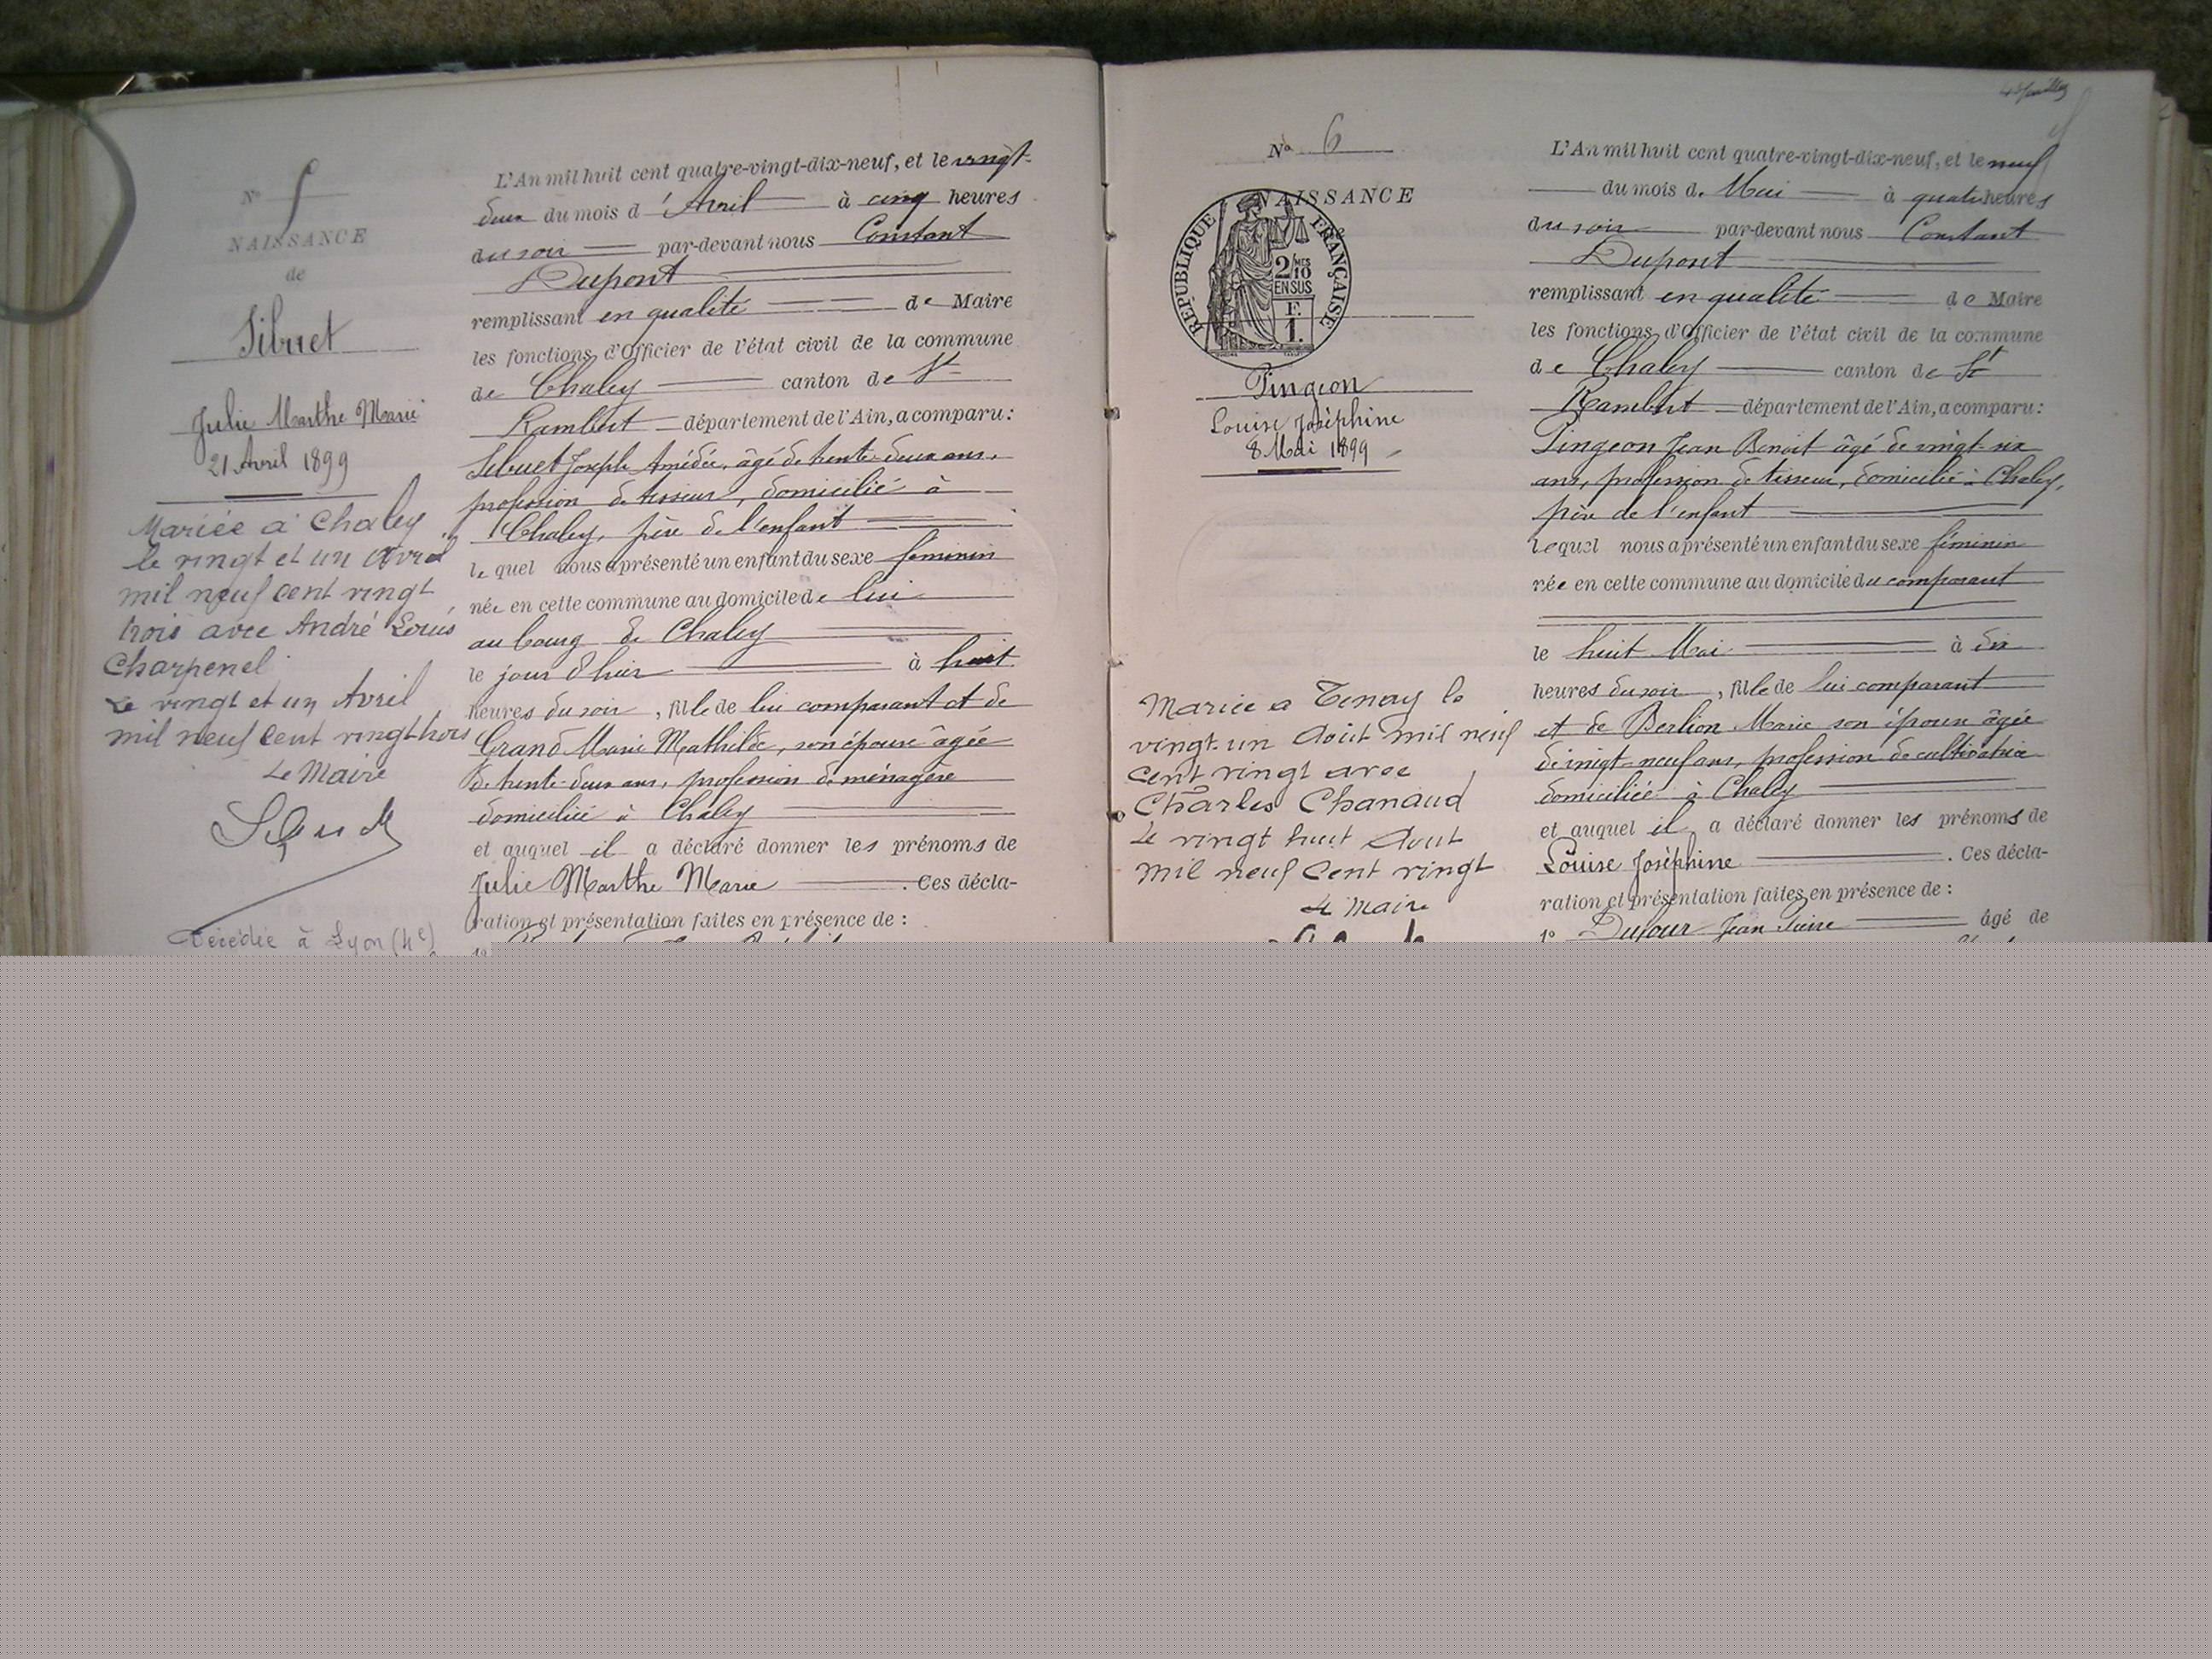 No 5
NAISSANCE
de
Sibuet
Julie Marthe Marie
21 Avril 1899
Mariée à Chaley
le vingt et un Avril
mil neuf cent vingt
trois avec André Louis
Charpenel
Le vingt et un Avril
mil neuf cent vingt trois
Le Maire
Décédée à Lyon (4e)
L'An mil huit cent quatre-vingt-dix-neuf, et le vingt-
deux du mois d'Avril à cinq heures
du soir par-devant nous Constant
Dupont
remplissant en qualité de Maire
les fonctions d'Officier de l'état civil de la commune
de Chaley canton de St
Rambert département de l'Ain, a comparu :
Sibuet Joseph Amédée, âgé de trente-deux ans,
profession de tisseur, domicilié à
Chaley, père de l'enfant
le quel nous a présenté un enfant du sexe féminin
née en cette commune au domicile de lui
au bourg de Chaley
le jour d'hier à huit
heures du soir, fille de lui comparant et de
Grand Marie Mathilde, son épouse âgée
de trente-deux ans, profession de ménagère
domiciliée à Chaley
et auquel il a déclaré donner les prénoms de
Julie Marthe Marie . Ces décla-
ration et présentation faites en présence de :
1o
No 6
NAISSANCE
RÉPUBLIQUE FRANÇAISE
2/10MES
EN SUS
F.
1.
Pingeon
Louise Joséphine
8 Mai 1899
Mariée a Tenay le
vingt-un Août mil neuf
cent vingt avec
Charles Chanaud
Le vingt huit Aout
mil neuf cent vingt
Le Maire
L'An mil huit cent quatre-vingt-dix-neuf, et le neuf
du mois de Mai à quatre heures
du soir par-devant nous Constant
Dupont
remplissant en qualité de Maire
les fonctions d'Officier de l'état civil de la commune
de Chaley canton de St
Rambert département de l'Ain, a comparu :
Pingeon Jean Benoit âgé de vingt-six
ans, profession de tisseur, domicilié à Chaley,
père de l'enfant
lequel nous a présenté un enfant du sexe féminin
née en cette commune au domicile du comparant
le huit Mai à dix
heures du soir, fille de lui comparant
et de Berlion Marie son épouse âgée
de vingt-neuf ans, profession de cultivatrice
domiciliée à Chaley
et auquel il a déclaré donner les prénoms de
Louise Joséphine . Ces décla-
ration et présentation faites en présence de :
1o Dufour Jean Pierre âgé de